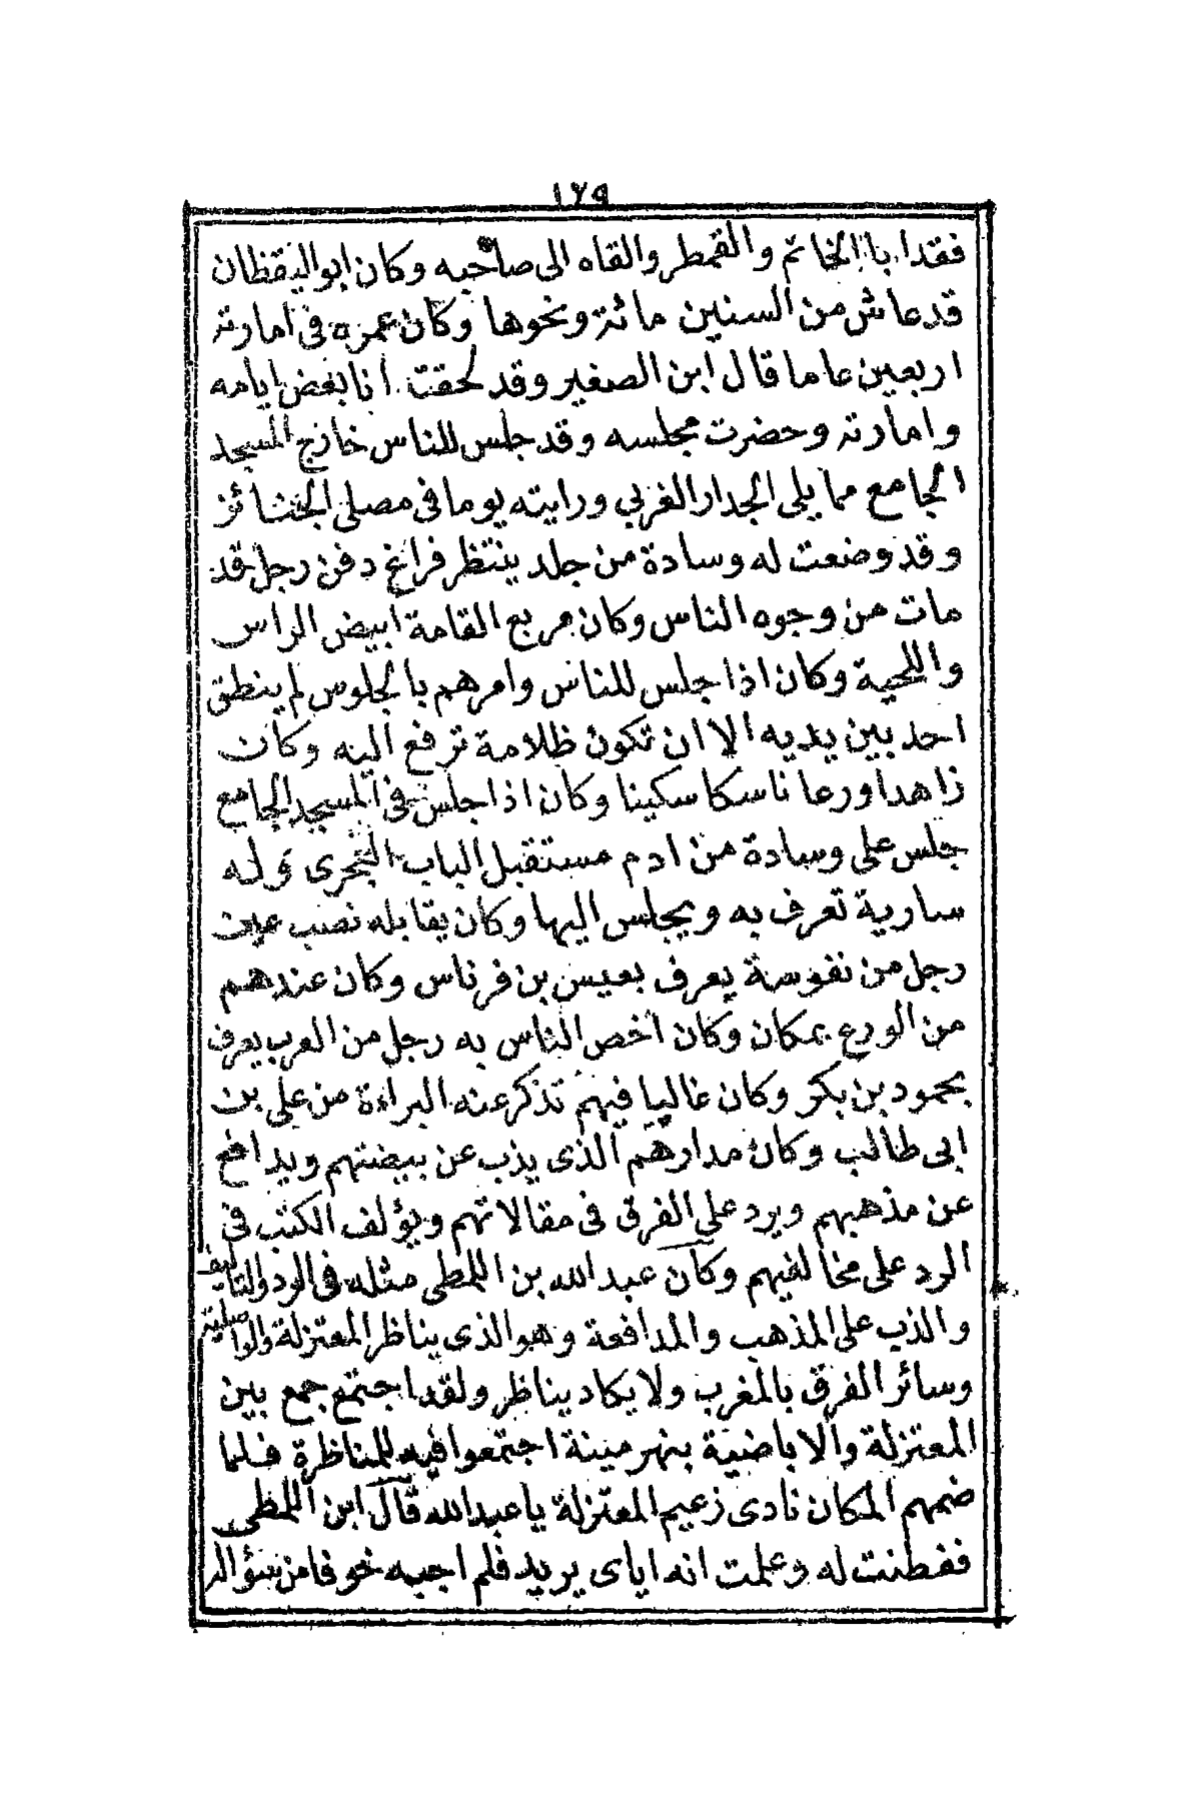 ١٧٩
فقدا بالخاتم والقمطر والقاه الى صاحبه وكان ابو اليقظان
قد عاش من السنين مائة ونحوها وكان عمره فى امارته
اربعين عاما قال ابن الصغير وقد لحقت انا بعض ايامه
وامارته وحضرت مجلسه وقد جلس للناس خارج المسجد
الجامع مما يلى الجدار الغربي ورايته يوما فى مصلى الجنائز
وقد وضعت له وسادة من جلد ينتظر فراغ دفن رجل قد
مات من وجوه الناس وكان مربع القامة ابيض الراس
واللحية وكان اذا جلس للناس وامرهم بالجلوس لم ينطق
احد بين يديه الا ان تكون ظلامة ترفع اليه وكان
زاهدا ورعا ناسكا سكينا وكان اذا جلس فى المسجد الجامع
جلس على وسادة من ادم مستقبل الباب البحرى وله
سارية تعرف به ويجلس اليها وكان يقابله نصب عين
رجل من نفوسة يعرف بعيس بن فرناس وكان عندهم
من الورع بمكان وكان اخص الناس به رجل من العرب يعرف
بحمود بن بكر وكان غاليا فيهم تذكر عنه البراءة من على بن
ابى طالب وكان مدارهم الذى يذب عن بيضتهم ويدافع
عن مذهبهم ويرد على الفرق فى مقالاتهم ويؤلف الكتب فى
الرد على مخالفيهم وكان عبد الله بن اللمطى مثله فى الرد والتأليف
والذب على المذهب والمدافعة وهو الذى يناظر المعتزلة والواصلية
وسائر الفرق بالمغرب ولا يكاد يناظر ولقد اجتمع جمع بين
المعتزلة والاباضية بنهر مينة اجتمعوا فيه للمناظرة فلما
ضمهم المكان نادى زعيم المعتزلة يا عبد الله قال ابن اللمطى
ففطنت له وعلمت انه اياى يريد فلم اجبه خوفا من سؤال